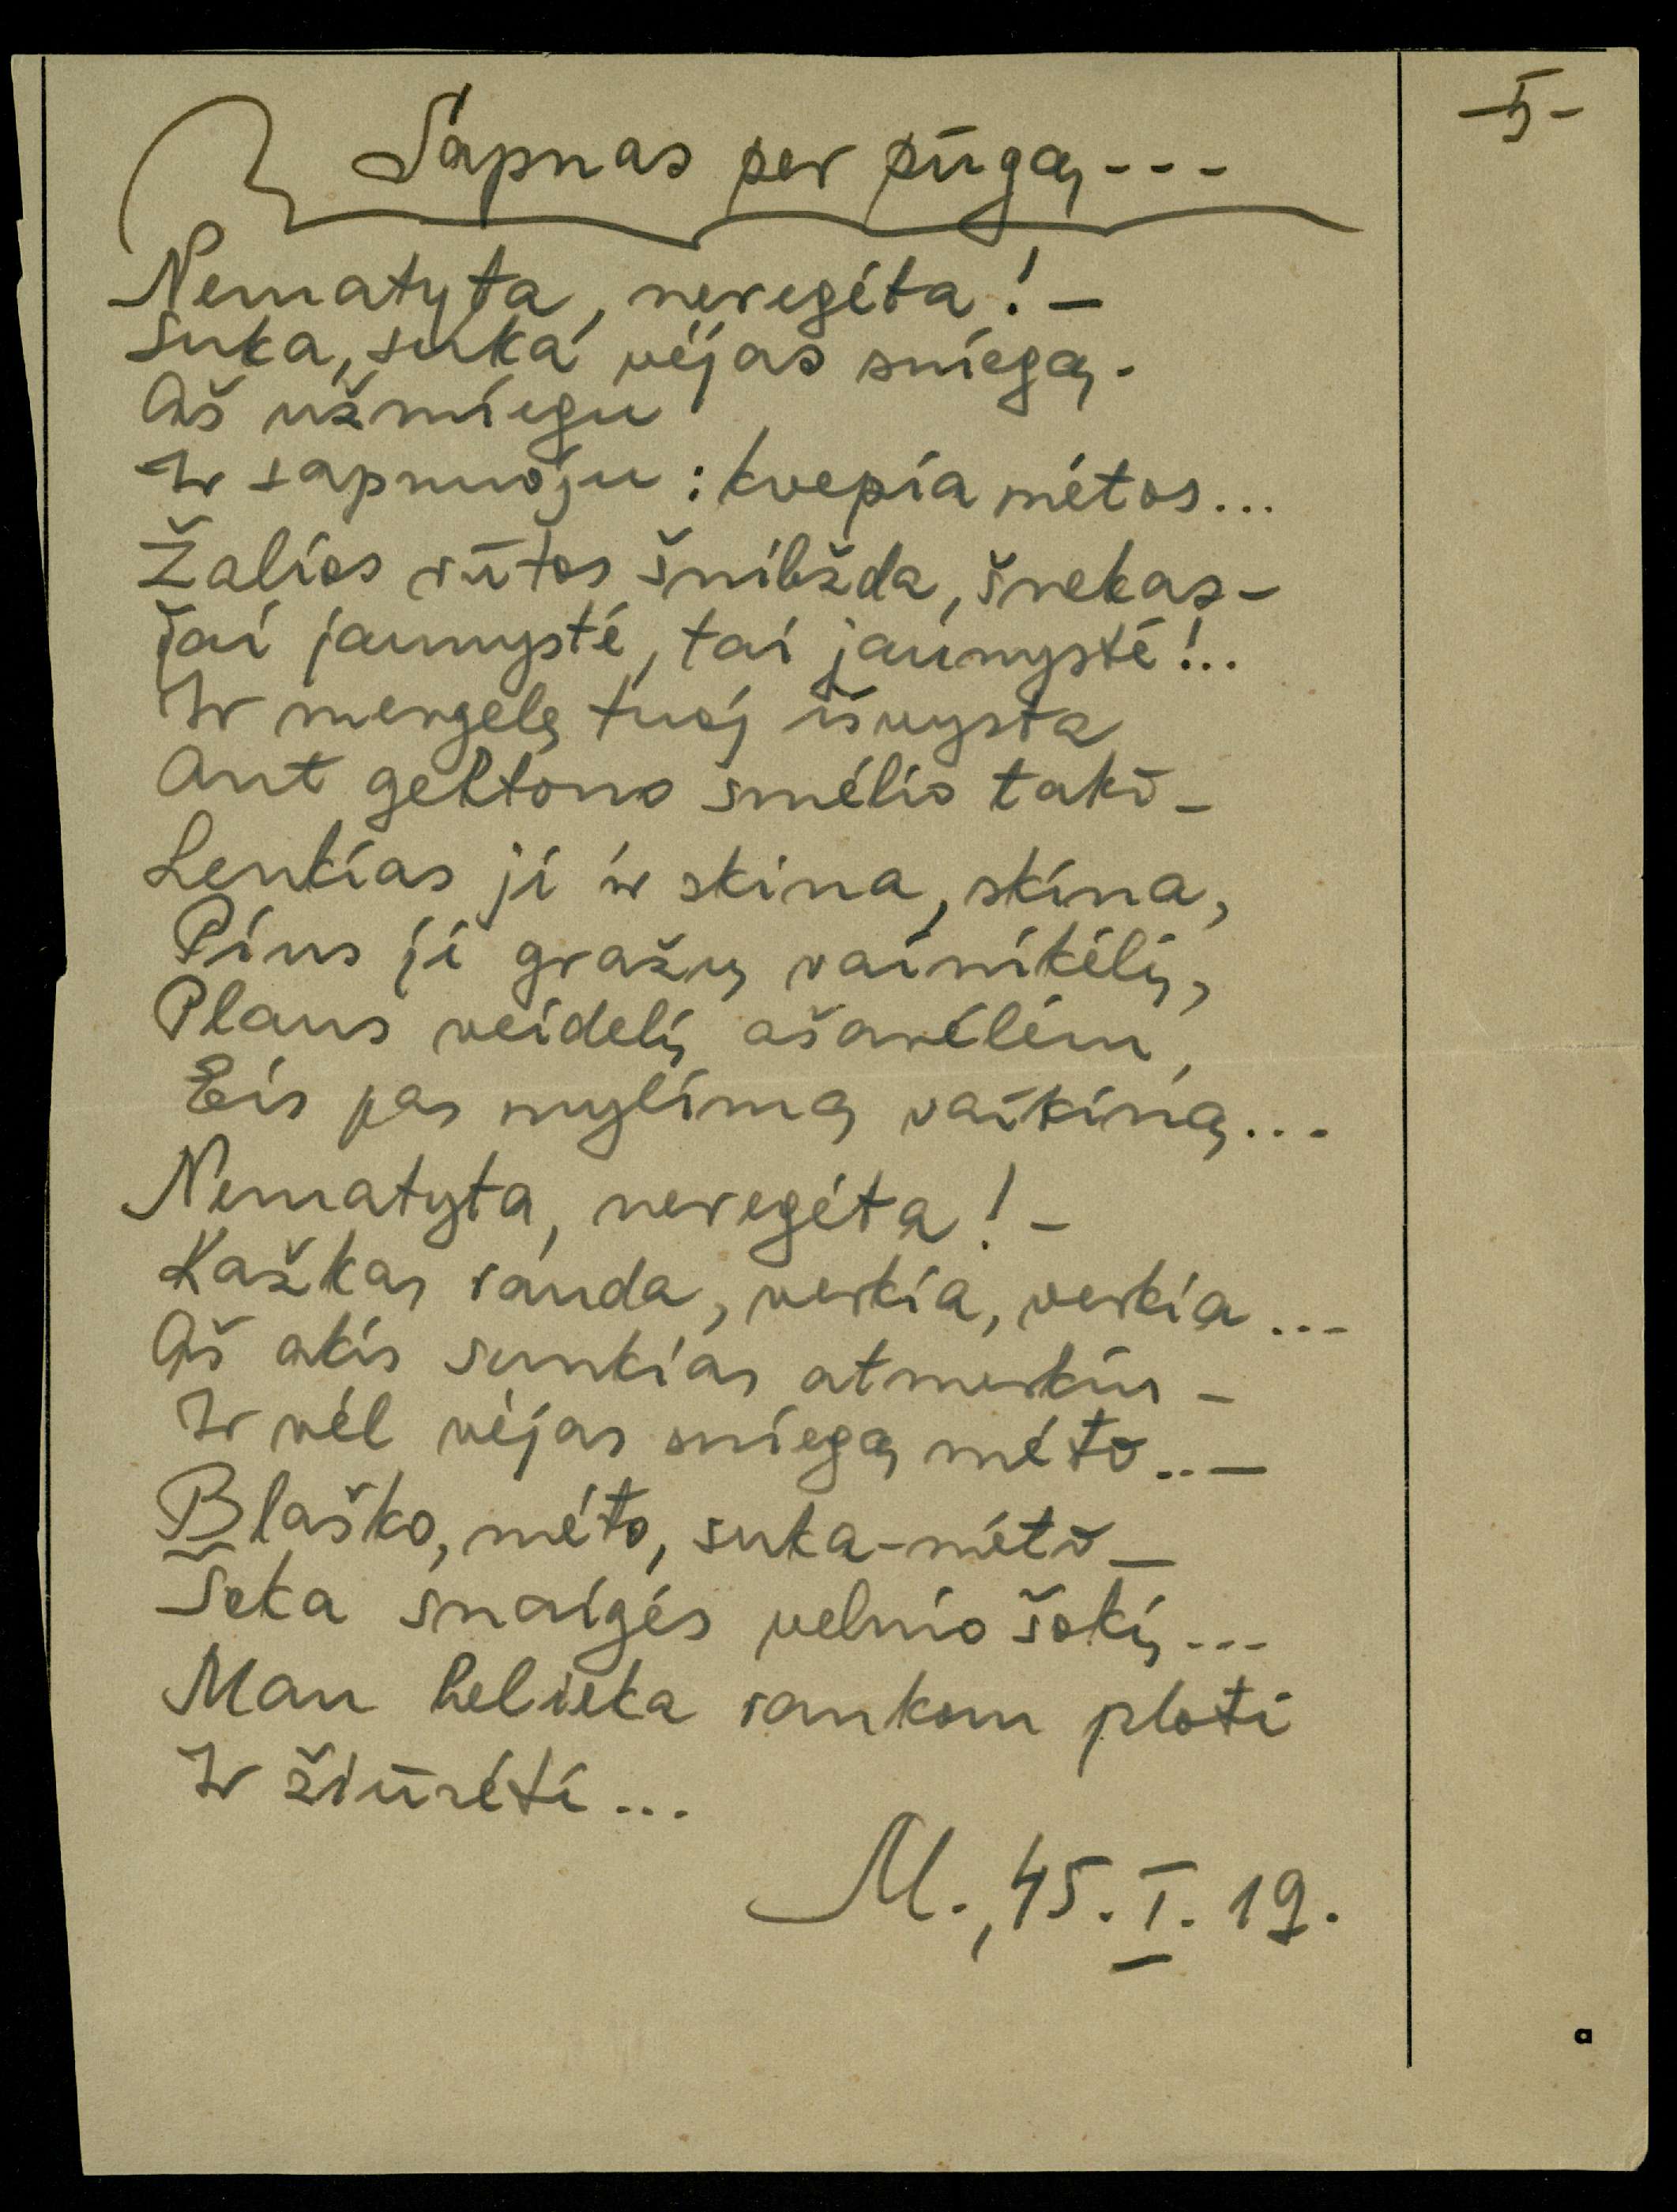 -5-
Sapnas per pūgą...
Nematyta, neregėta! –
Suka, suka vėjas sniegą.
Aš užmiegu
Ir sapnuoju: kvepia mėtos...
Žalios rūtos šnibžda, šnekas –
Tai jaunystė, tai jaunystė!..
Ir mergelę tuoj išvysta
Ant geltono smėlio tako –
Lenkias ji ir skina, skina,
Pins ji gražų vainikėlį,
Plaus veidelį ašarėlėm,
Eis pas mylimą vaikiną...
Nematyta, neregėta! –
Kažkas rauda, verkia, verkia...
Aš akis sunkias atmerkiu –
Ir vėl vėjas sniegą mėto.. –
Blaško, mėto, suka-mėto –
Šoka snaigės velnio šokį...
Man belieka rankom ploti
Ir žiūrėti...
M., 45.I.19.
a